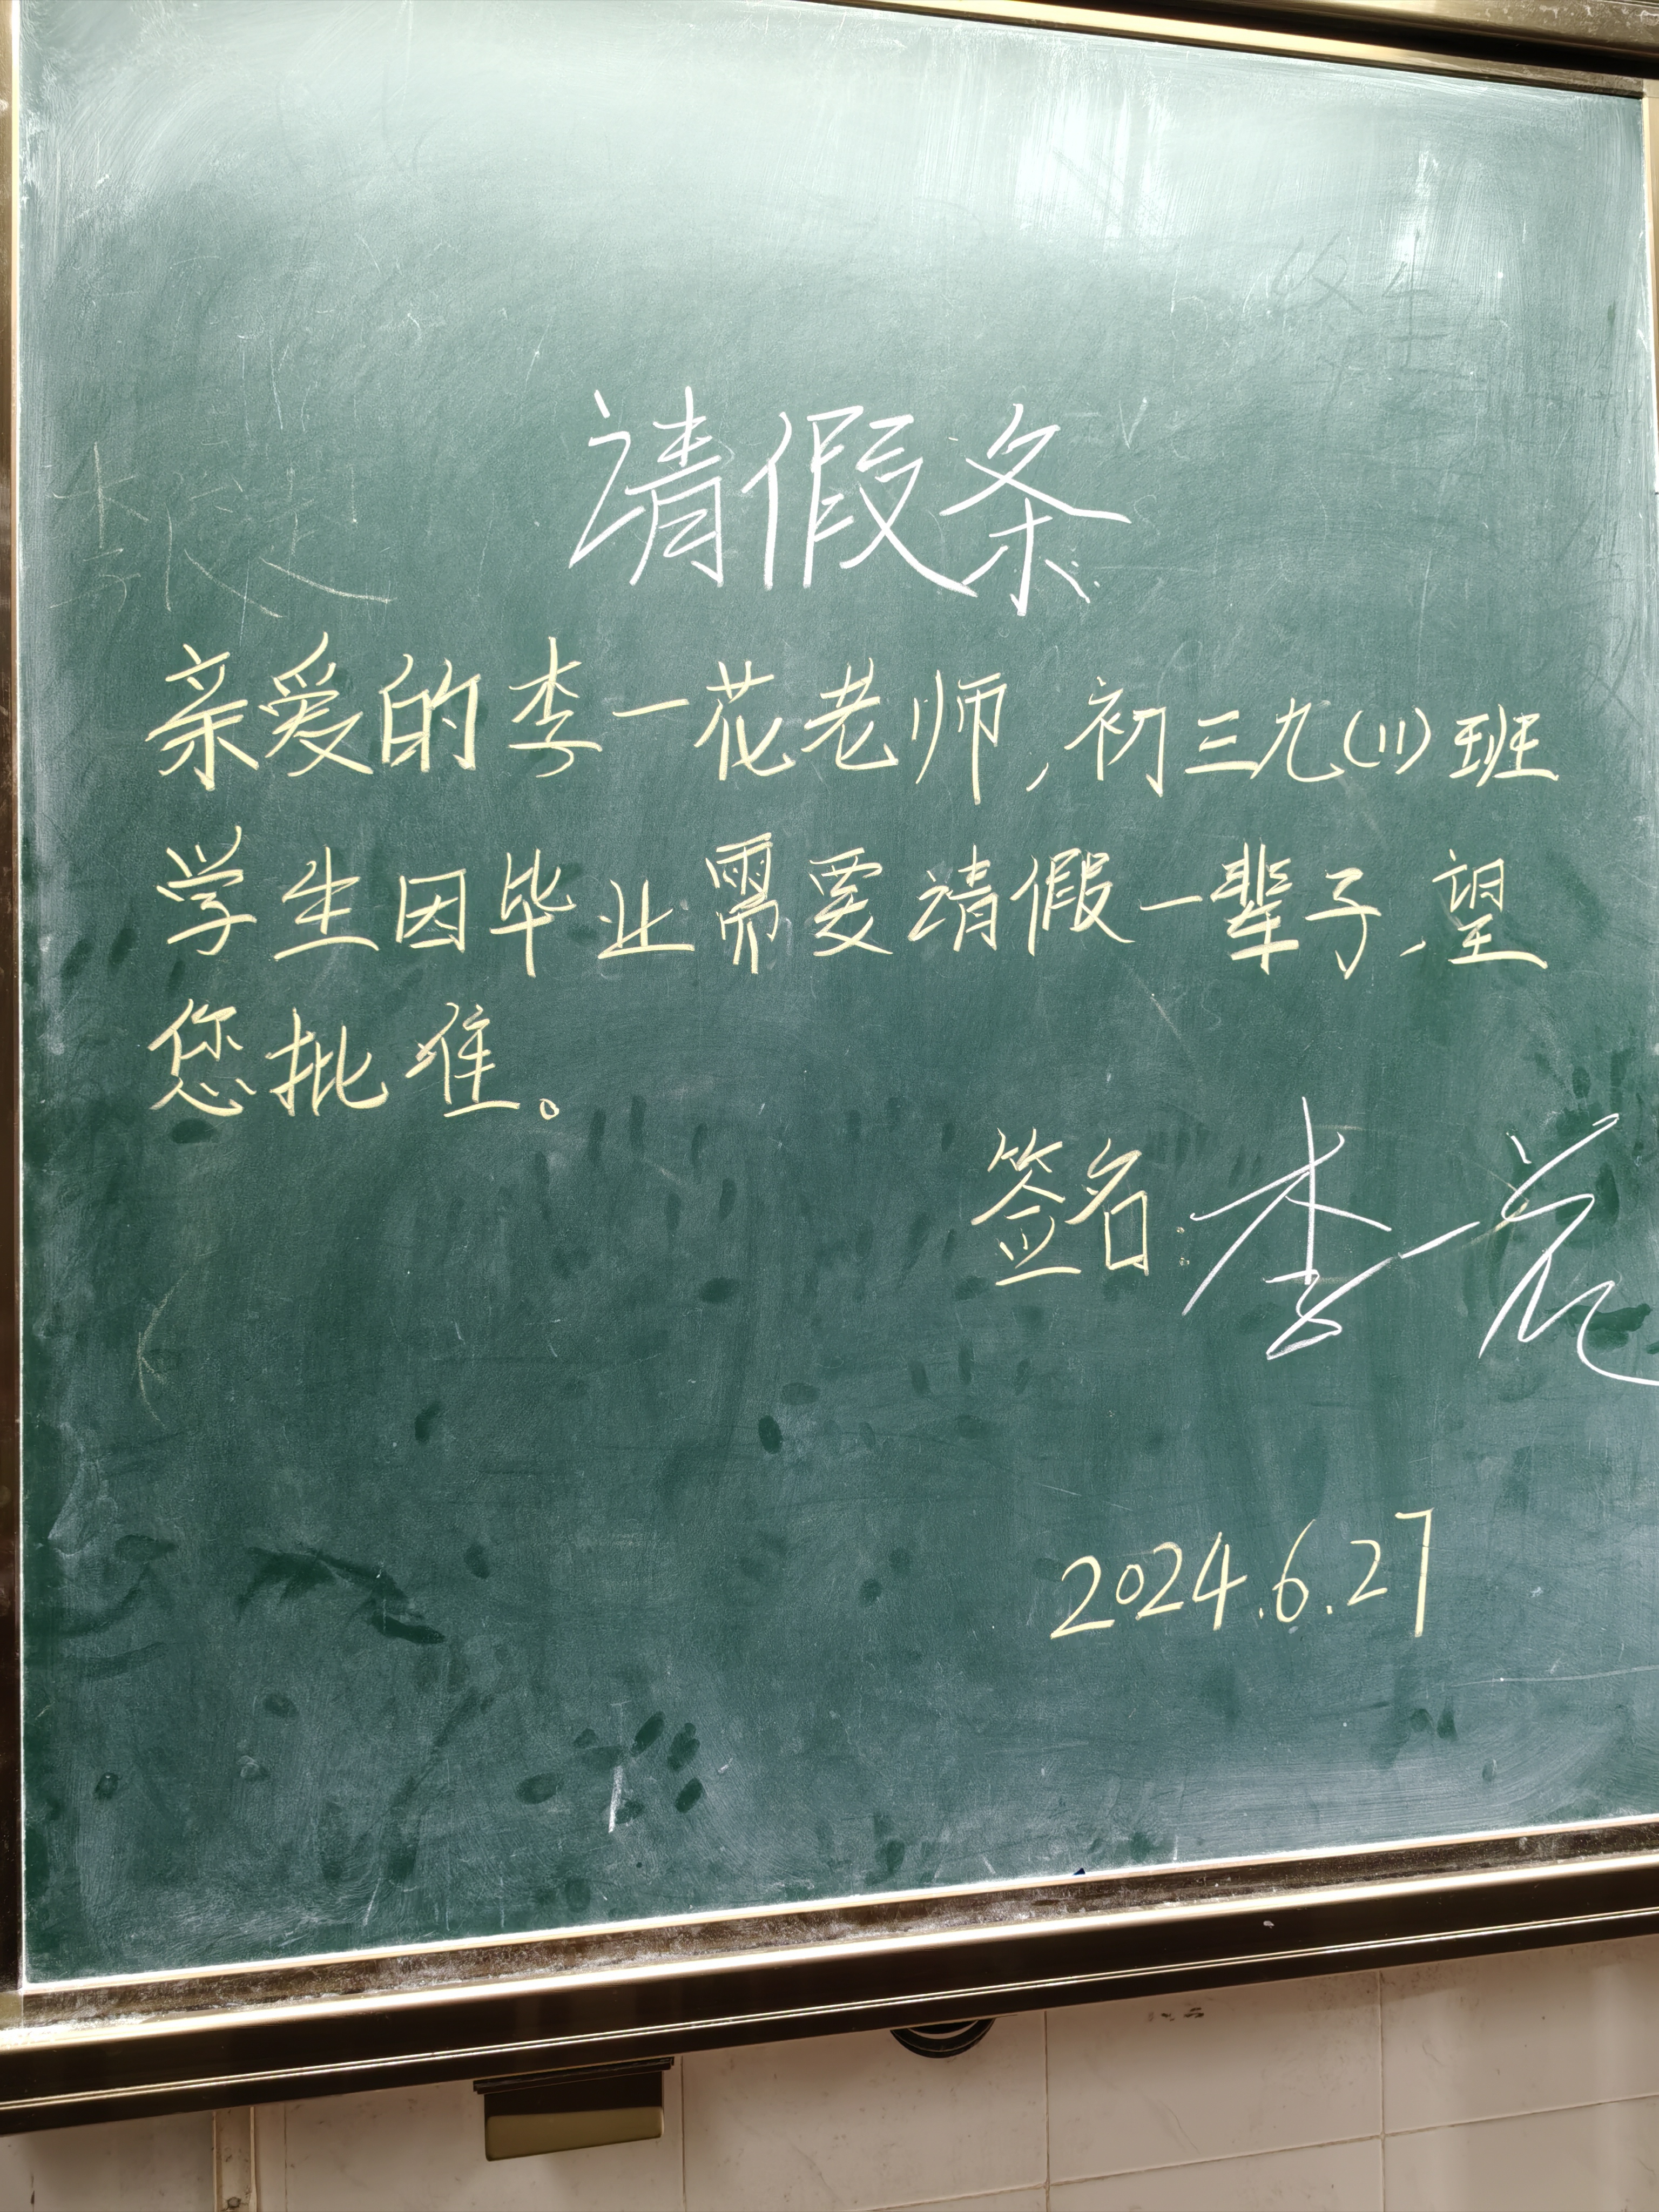 请假条
亲爱的李一花老师,初三九(11)班
学生因毕业需要请假一辈子,望
您批准。
签名:李一花
2024.6.27